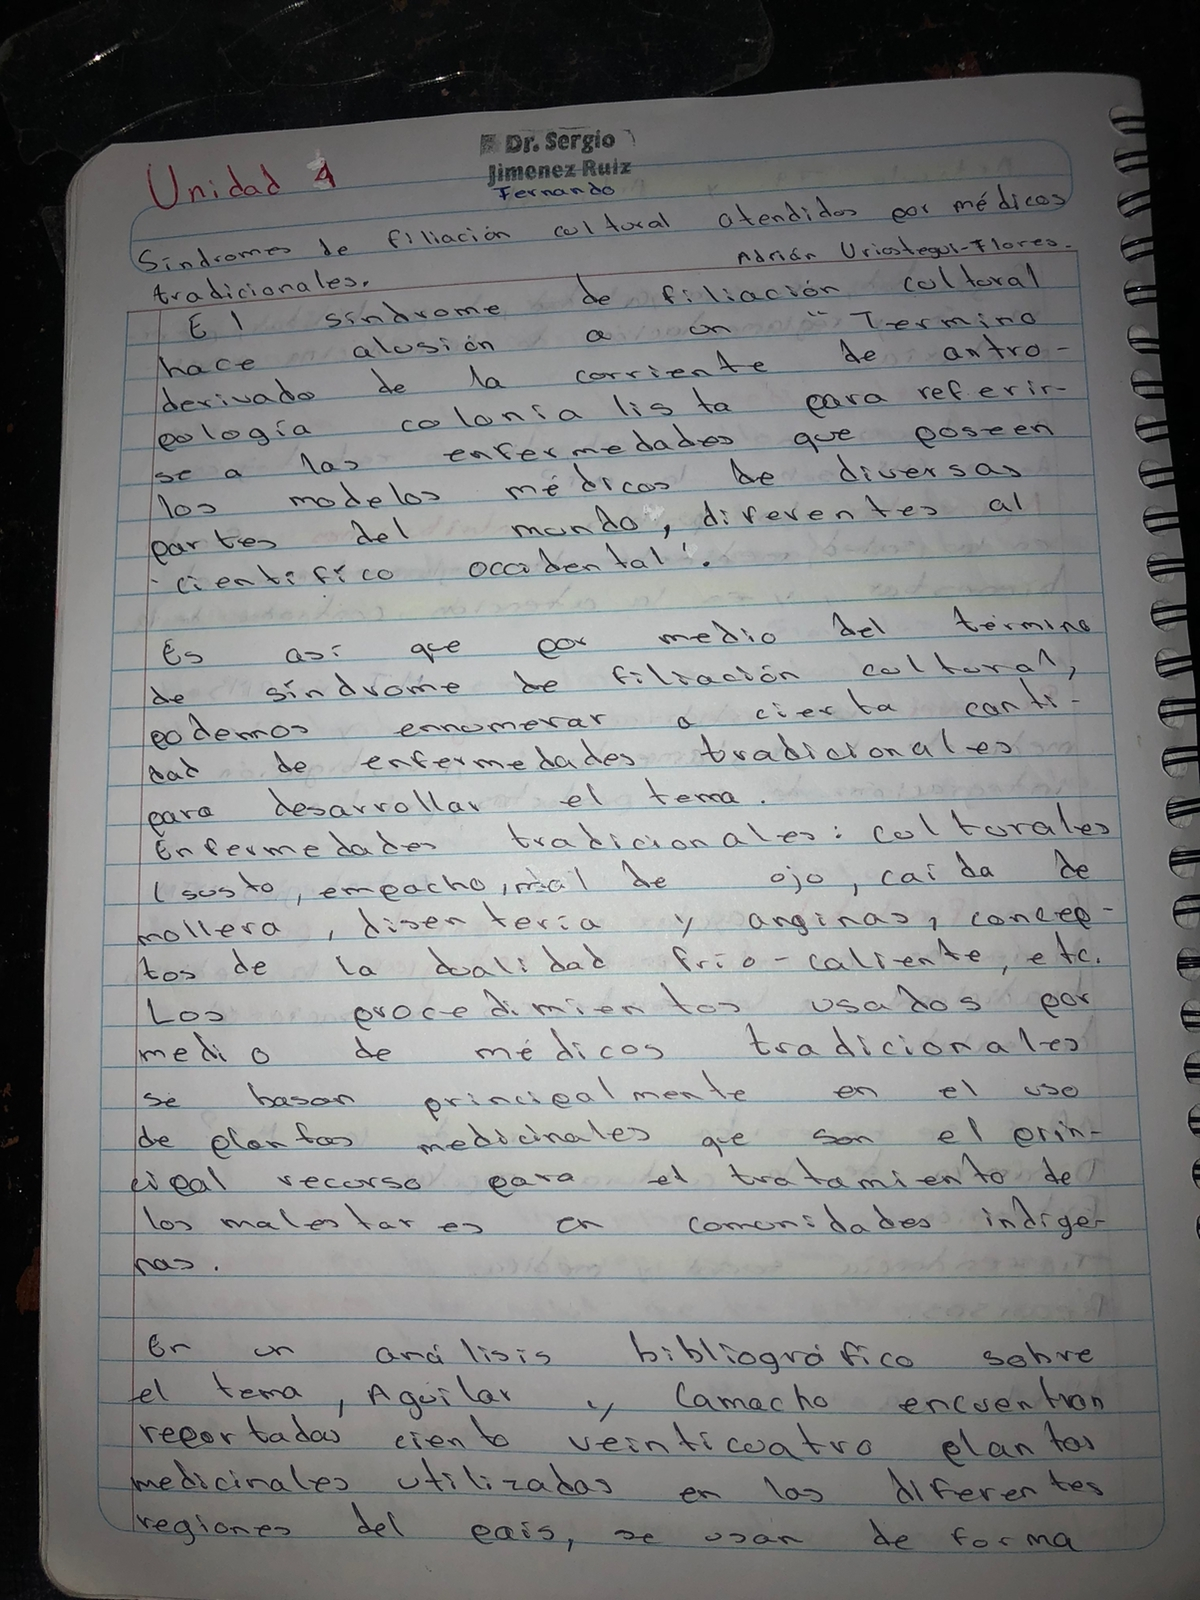 Dr. Sergio
Jimenez Ruiz
Fernando
Unidad 4
Síndromes de filiación cultural atendidos por médicos
tradicionales.
Adrián Uriostegui-Flores.
El síndrome de filiación cultural
hace alusión a un "Termino
derivado de la corriente de antro-
pología colonialista para referir-
se a las enfermedades que poseen
los modelos médicos de diversas
partes del mundo, diferentes al
cientifíco occidental".
Es así que por medio del término
de síndrome de filiación cultural,
podemos ennumerar a cierta canti-
dad de enfermedades tradicionales
para desarrollar el tema.
Enfermedades tradicionales: culturales
(susto, empacho, mal de ojo, caída de
mollera, disentería y anginas, concep-
tos de la dualidad frío-caliente, etc.
Los procedimientos usados por
medio de médicos tradicionales
se basan principalmente en el uso
de plantas medicinales que son el prin-
cipal recurso para el tratamiento de
los malestares en comunidades indíge-
nas.
En un análisis bibliográfico sobre
el tema, Aguilar y Camacho encuentran
reportadas ciento veinticuatro plantas
medicinales utilizadas en las diferentes
regiones del país, se usan de forma